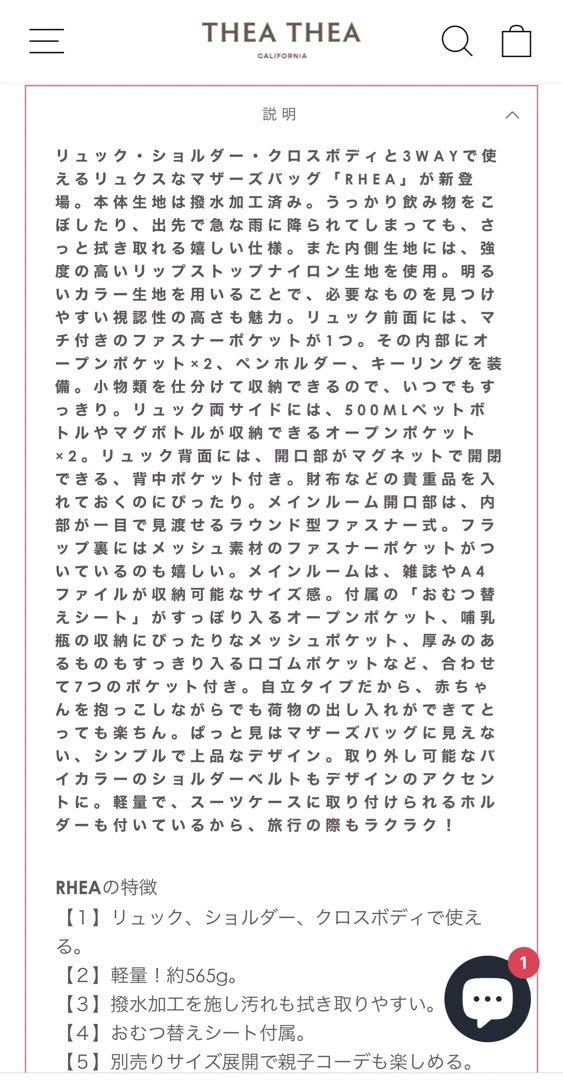 THEA THEA
CALIFORNIA
説明
リュック・ショルダー・クロスボディと3WAYで使
えるリュクスなマザーズバッグ「RHEA」が新登
場。本体生地は撥水加工済み。うっかり飲み物をこ
ぼしたり、出先で急な雨に降られてしまっても、さ
っと拭き取れる嬉しい仕様。また内側生地には、強
度の高いリップストップナイロン生地を使用。明る
いカラー生地を用いることで、必要なものを見つけ
やすい視認性の高さも魅力。リュック前面には、マ
チ付きのファスナーポケットが1つ。その内部にオ
ープンポケット×2、ペンホルダー、キーリングを装
備。小物類を仕分けて収納できるので、いつでもす
っきり。リュック両サイドには、500MLペットボ
トルやマグボトルが収納できるオープンポケット
×2。リュック背面には、開口部がマグネットで開閉
できる、背中ポケット付き。財布などの貴重品を入
れておくのにぴったり。メインルーム開口部は、内
部が一目で見渡せるラウンド型ファスナー式。フラ
ップ裏にはメッシュ素材のファスナーポケットがつ
いているのも嬉しい。メインルームは、雑誌やA4
ファイルが収納可能なサイズ感。付属の「おむつ替
えシート」がすっぽり入るオープンポケット、哺乳
瓶の収納にぴったりなメッシュポケット、厚みのあ
るものもすっきり入る口ゴムポケットなど、合わせ
て7つのポケット付き。自立タイプだから、赤ちゃ
んを抱っこしながらでも荷物の出し入れができてと
っても楽ちん。ぱっと見はマザーズバッグに見えな
い、シンプルで上品なデザイン。取り外し可能なバ
イカラーのショルダーベルトもデザインのアクセン
トに。軽量で、スーツケースに取り付けられるホル
ダーも付いているから、旅行の際もラクラク！
RHEAの特徴
【1】リュック、ショルダー、クロスボディで使え
る。
【2】軽量！約565g。
【3】撥水加工を施し汚れも拭き取りやすい。
【4】おむつ替えシート付属。
【5】別売りサイズ展開で親子コーデも楽しめる。
1